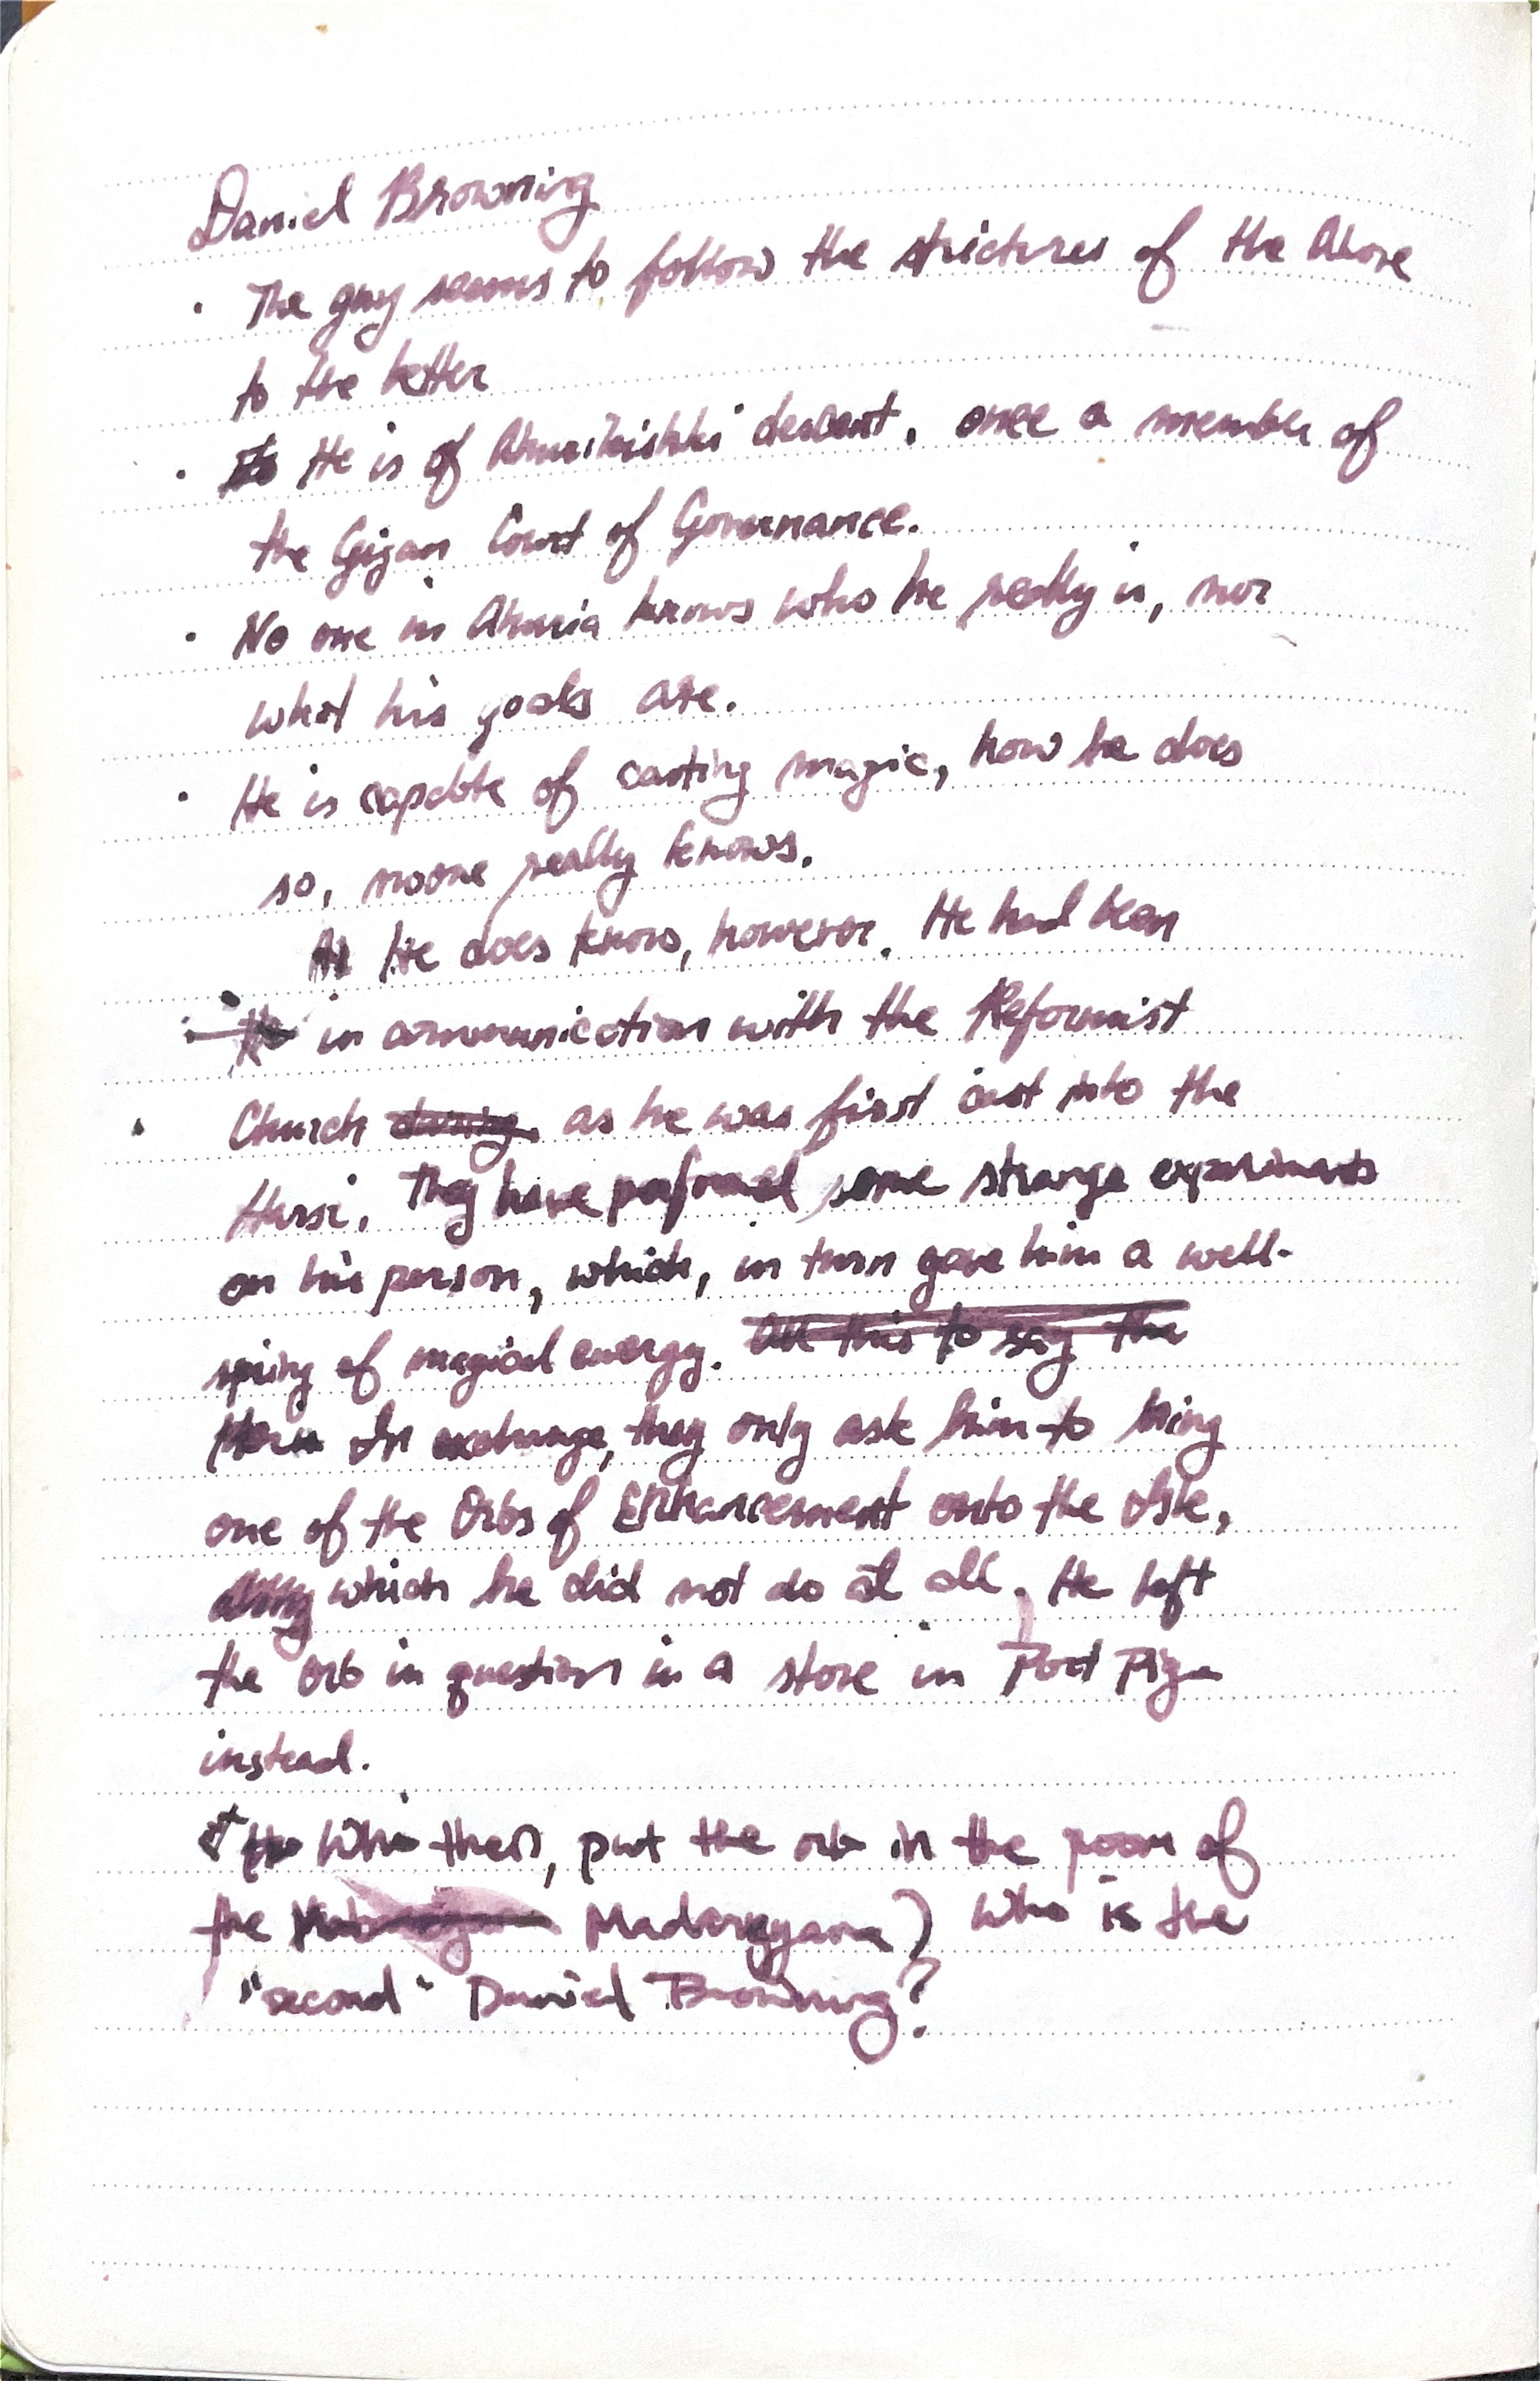 Daniel Browning
· The guy seems to follow the strictures of the Above
to the letter
· He is of descent, once a member of
the Gijan Court of Governance.
· No one in knows who he really is, nor
what his goals are.
· He is capable of casting magic, how he does
so, noone really knows.
He does know, however. He had been
in communication with the Reformist
· Church as he was first cast into the
They have performed some strange experiments
on his person, which, in turn gave him a well-
spring of magical energy. All this to say the
In exchange, they only ask him to bring
one of the Orbs of Enhancement onto the
which he did not do at all. He left
the Orb in question in a store in Port
instead.
Who then, put the orb in the room of
the Who is the
"second" Daniel Browning?